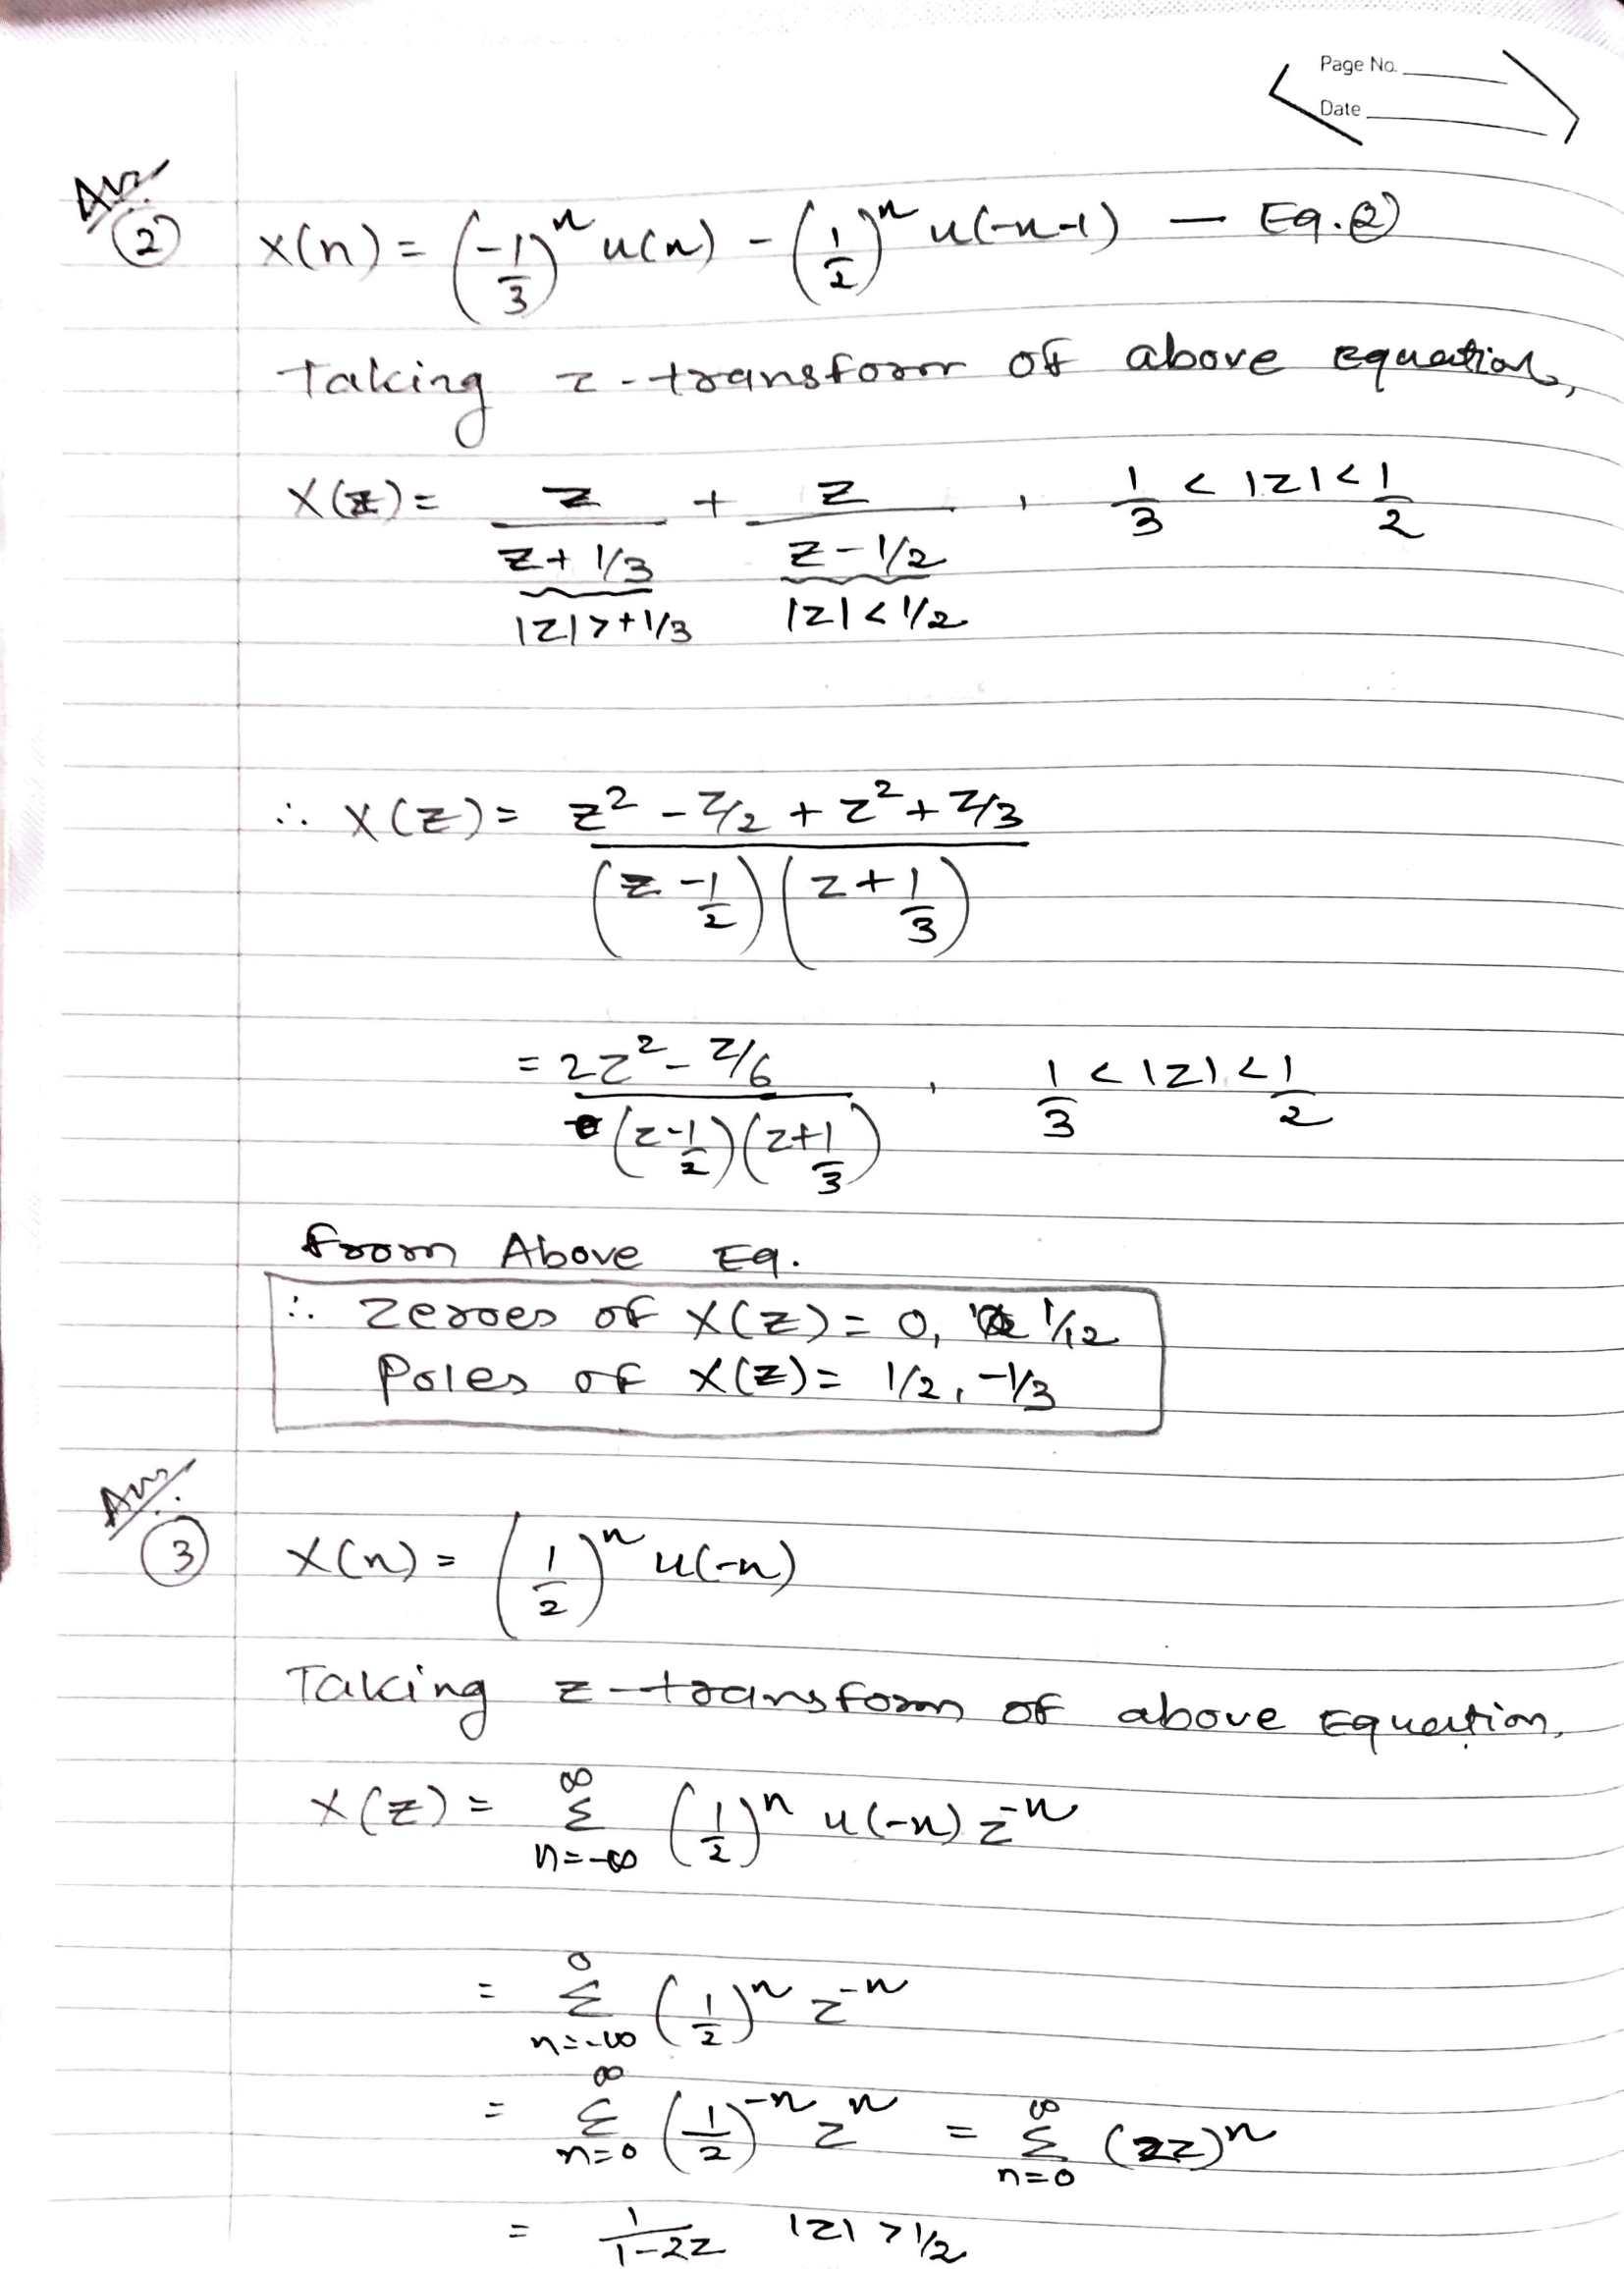 Page No.
Date
Ans.
(2) x(n) = (-1/3)^n u(n) - (1/2)^n u(-n-1) — Eq. (2)
Taking z-transform of above equation,
X(z) = z/(z + 1/3) + z/(z - 1/2) , 1/3 < |z| < 1/2
|z| > +1/3 |z| < 1/2
∴ X(z) = (z² - z/2 + z² + z/3) / ((z - 1/2)(z + 1/3))
= (2z² - z/6) / ((z - 1/2)(z + 1/3)) , 1/3 < |z| < 1/2
from Above Eq.
∴ Zeroes of X(z) = 0, 1/12
Poles of X(z) = 1/2, -1/3
Ans.
(3) x(n) = (1/2)^n u(-n)
Taking z-transform of above Equation,
X(z) = ∞ Σ n=-∞ (1/2)^n u(-n) z^-n
= 0 Σ n=-∞ (1/2)^n z^-n
= ∞ Σ n=0 (1/2)^-n z^n = ∞ Σ n=0 (2z)^n
= 1/(1-2z) |z| > 1/2